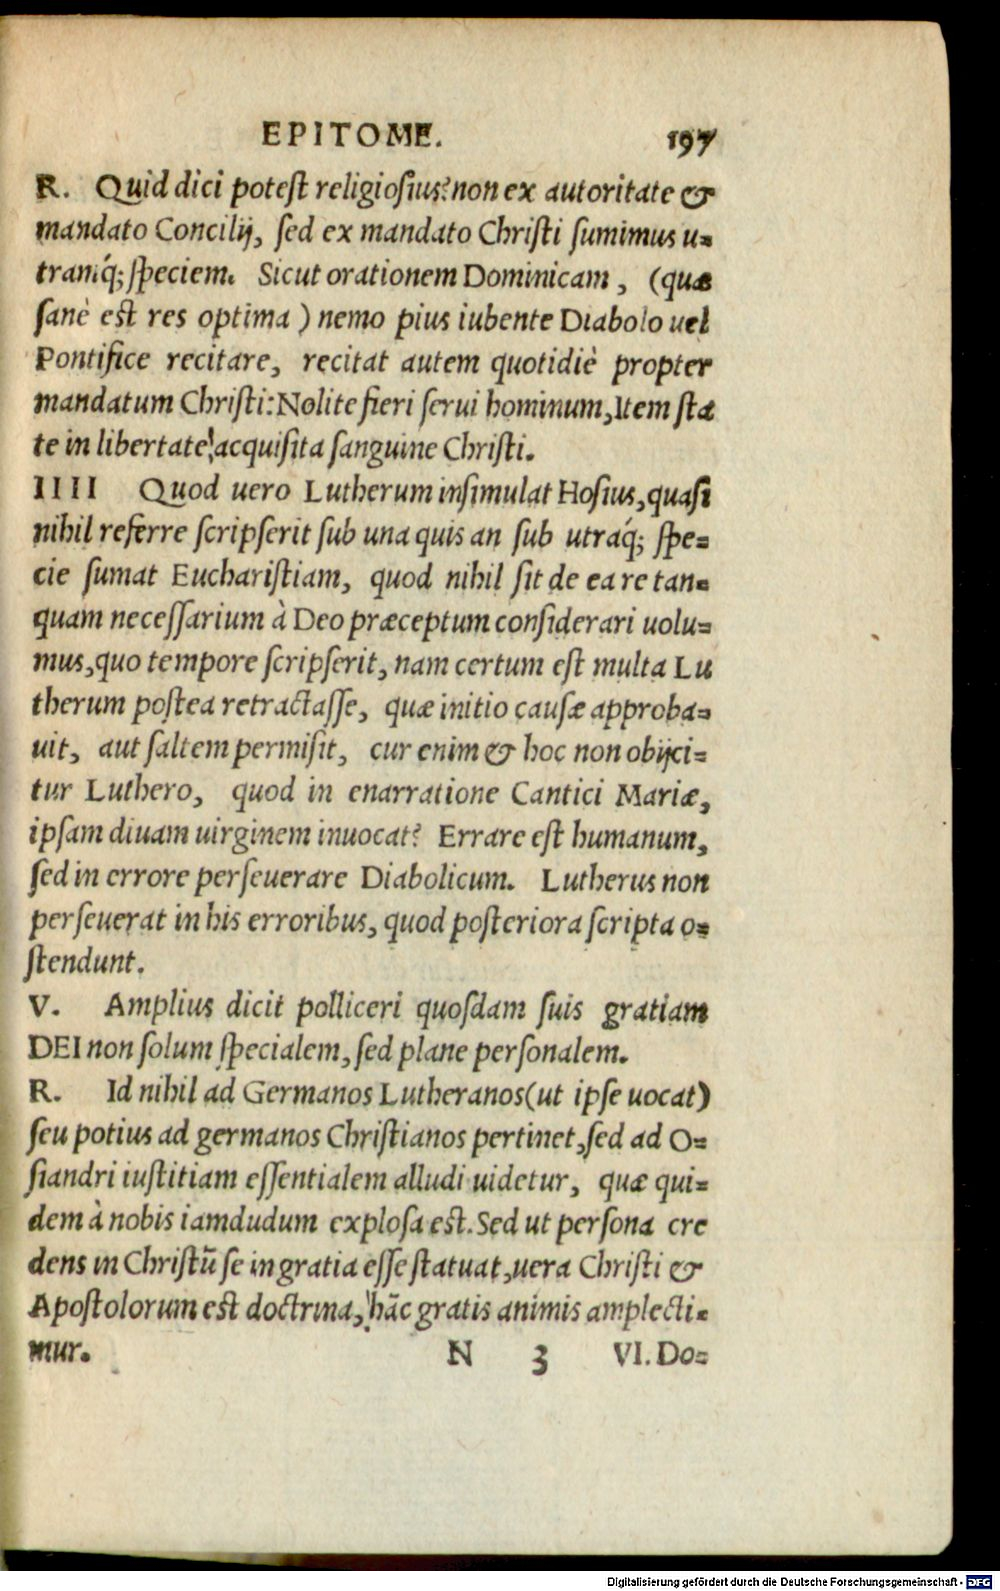 EPITOME. 197
R. Quid dici potest religiosius? non ex autoritate &
mandato Concilij, sed ex mandato Christi sumimus u=
tramq́; speciem. Sicut orationem Dominicam, (quæ
sanè est res optima) nemo pius iubente Diabolo uel
Pontifice recitare, recitat autem quotidiè propter
mandatum Christi: Nolite fieri serui hominum, Item sta
te in libertate acquisita sanguine Christi.
IIII Quod uero Lutherum insimulat Hosius, quasi
nihil referre scripserit sub una quis an sub utraq́; spe=
cie sumat Eucharistiam, quod nihil sit de ea re tan=
quam necessarium à Deo præceptum considerari uolu=
mus, quo tempore scripserit, nam certum est multa Lu
therum postea retractasse, quæ initio causæ approba=
uit, aut saltem permisit, cur enim & hoc non obijci=
tur Luthero, quod in enarratione Cantici Mariæ,
ipsam diuam uirginem inuocat? Errare est humanum,
sed in errore perseuerare Diabolicum. Lutherus non
perseuerat in his erroribus, quod posteriora scripta o=
stendunt.
V. Amplius dicit polliceri quosdam suis gratiam
DEI non solum specialem, sed plane personalem.
R. Id nihil ad Germanos Lutheranos (ut ipse uocat)
seu potius ad germanos Christianos pertinet, sed ad O=
siandri iustitiam essentialem alludi uidetur, quæ qui=
dem à nobis iamdudum explosa est. Sed ut persona cre
dens in Christū se in gratia esse statuat, uera Christi &
Apostolorum est doctrina, hāc gratis animis amplecti=
mur. N 3 VI. Do=
Digitalisierung gefördert durch die Deutsche Forschungsgemeinschaft - DFG